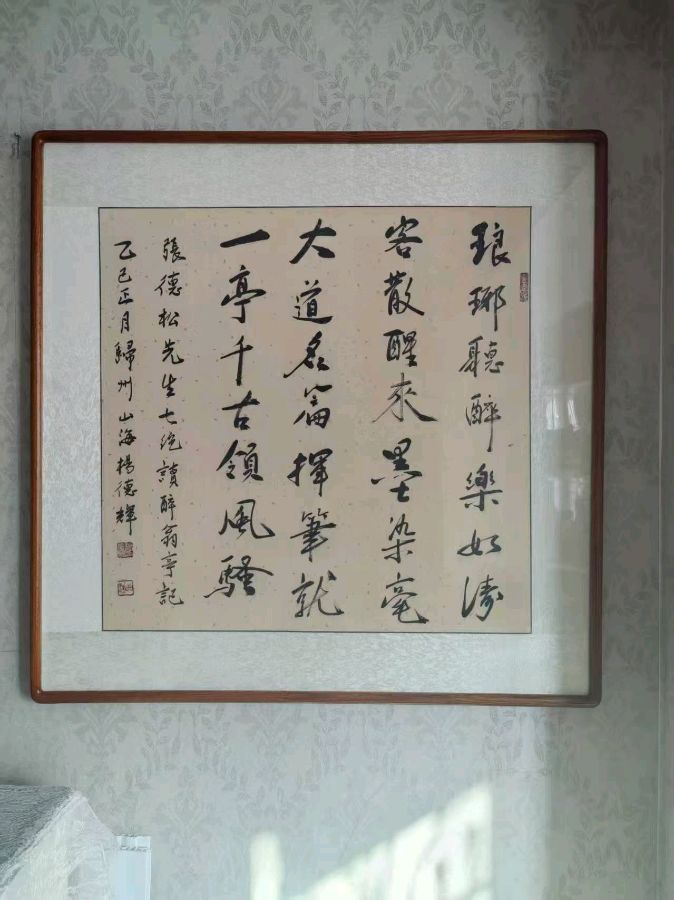 琅琊聽醉樂如濤
客散醒來墨染毫
大道名篇揮筆就
一亭千古領風騷
張德松先生七绝讀醉翁亭記
乙巳正月歸州山海楊德輝